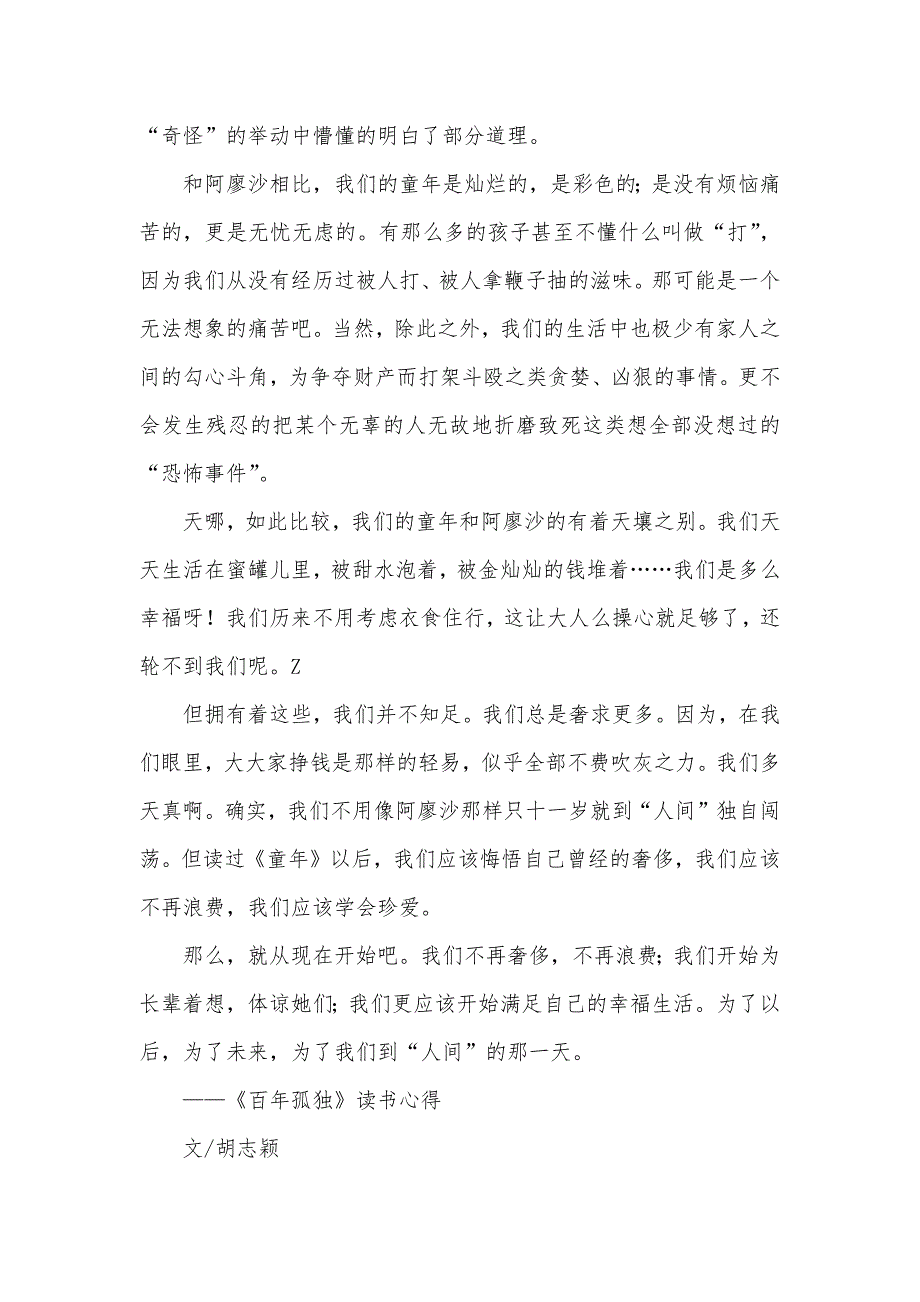 “奇怪”的举动中懵懂的明白了部分道理。
和阿廖沙相比，我们的童年是灿烂的，是彩色的；是没有烦恼痛
苦的，更是无忧无虑的。有那么多的孩子甚至不懂什么叫做“打”，
因为我们从没有经历过被人打、被人拿鞭子抽的滋味。那可能是一个
无法想象的痛苦吧。当然，除此之外，我们的生活中也极少有家人之
间的勾心斗角，为争夺财产而打架斗殴之类贪婪、凶狠的事情。更不
会发生残忍的把某个无辜的人无故地折磨致死这类想全部没想过的
“恐怖事件”。
天哪，如此比较，我们的童年和阿廖沙的有着天壤之别。我们天
天生活在蜜罐儿里，被甜水泡着，被金灿灿的钱堆着……我们是多么
幸福呀！我们历来不用考虑衣食住行，这让大人么操心就足够了，还
轮不到我们呢。Z
但拥有着这些，我们并不知足。我们总是奢求更多。因为，在我
们眼里，大大家挣钱是那样的轻易，似乎全部不费吹灰之力。我们多
天真啊。确实，我们不用像阿廖沙那样只十一岁就到“人间”独自闯
荡。但读过《童年》以后，我们应该悔悟自己曾经的奢侈，我们应该
不再浪费，我们应该学会珍爱。
那么，就从现在开始吧。我们不再奢侈，不再浪费；我们开始为
长辈着想，体谅她们；我们更应该开始满足自己的幸福生活。为了以
后，为了未来，为了我们到“人间”的那一天。
——《百年孤独》读书心得
文/胡志颖